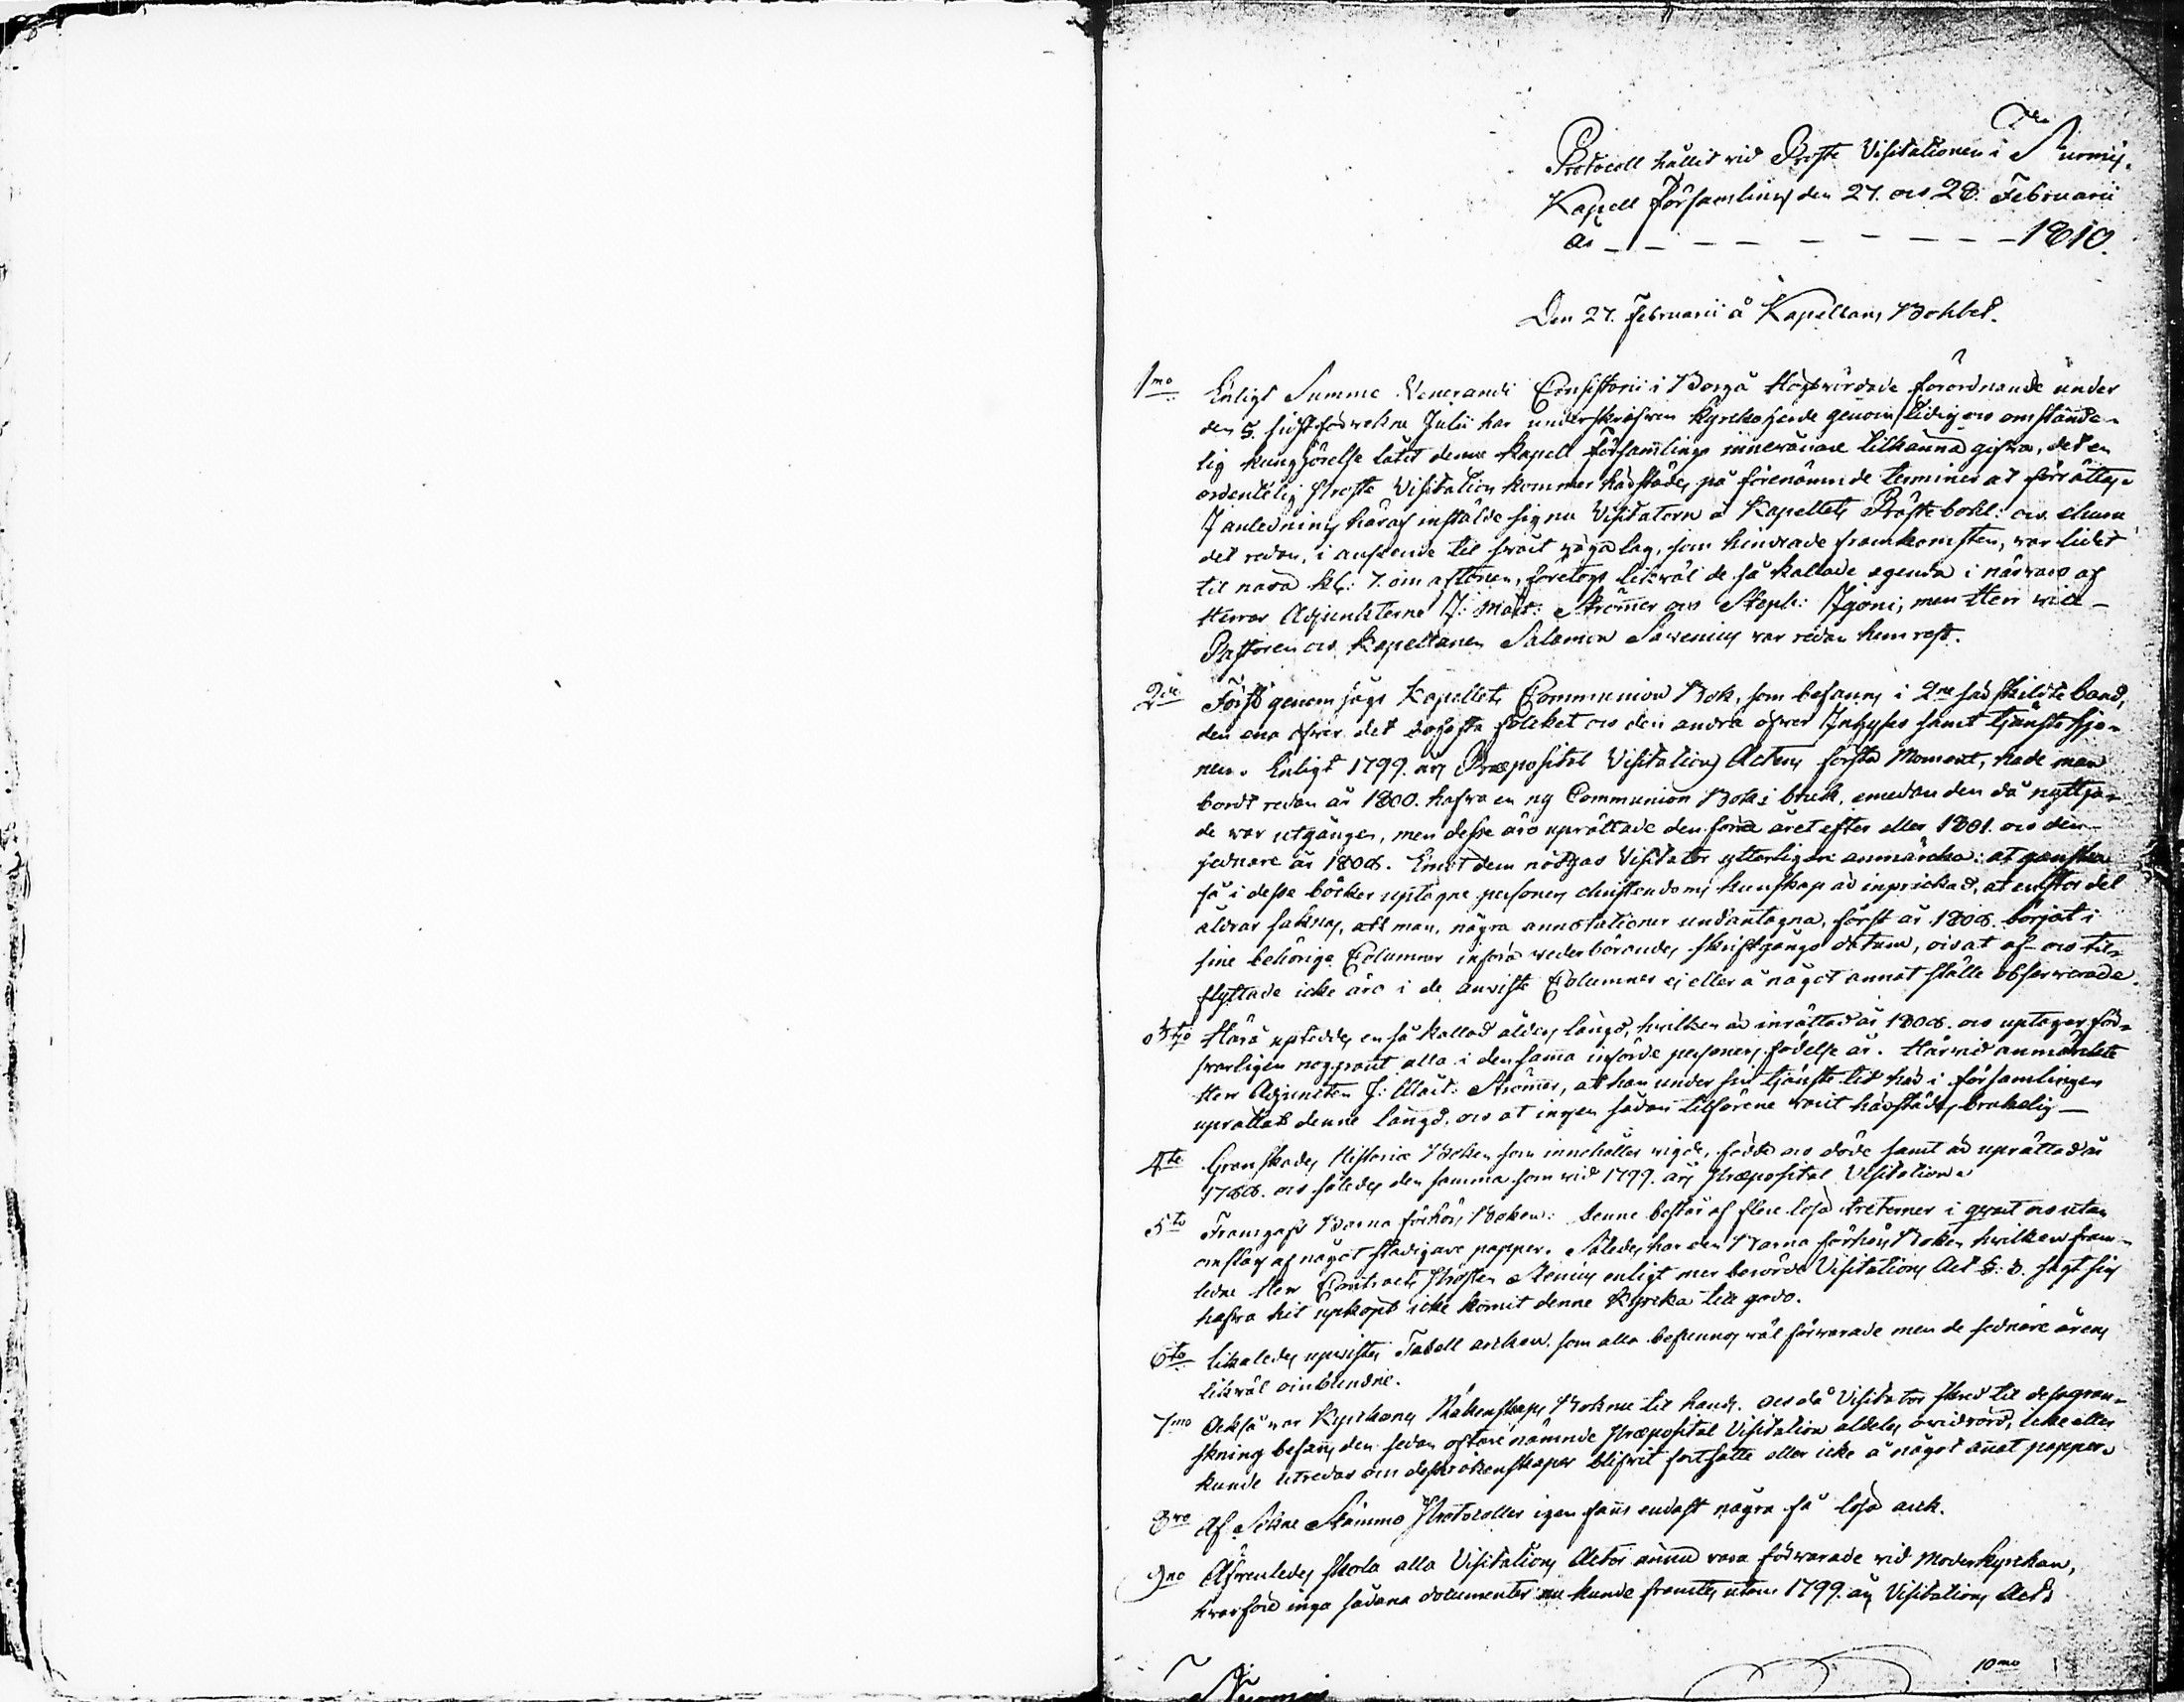 Protocoll hållit vid Prosts Visitationen i Nurmis
Kapell Församling den 27. och 28. Februarii
år — — — — — — — — 1810.
Den 27. Februarii å Kapellans Bohlet.
1mo Enligt Summe Venerandi Consistorii i Borgå Högtvördade förordnande under
den 5. sidstförvekne Julii har underskrifven Kyrkoherde genom tidig och omstände-
lig kungjörelse låtit denna Kapell Församlings innevånare tilkänna gifva, det en
ordentelig Prosts Visitation kommer härstädes på förenämnde terminer at förrättas.
I anledning häraf instälde sig nu Visitatorn å Kapellets Prästebohl: och ehuru
det redan, i anseende til svårt vägalag, som hindrade framkomsten, var lidet
til nära kl: 7. om aftonen, företogs likväl de så kallade agenda i närvaro af
Herrar Adjunkterne J: Mårt: Strömmer och Steph: Igoni, men Herr vice
Pastoren och Kapellanen Salomon Savenius var redan hemrest.
2do Först genomsågs Kapellets Communion Bok, som befanns i 2ne särskildte band,
den ena öfver det bofasta folcket och den andra öfver Inhyses samt tjänstehjo-
nen. Enligt 1799. års Præpositol Visitations Actens första Moment, hade man
bordt redan år 1800. hafva en ny Communion Bok i bruk, emedan den då nyttja-
de var utgången, men desse äro uprättade den förra året efter eller 1801. och den
sednare år 1808. Emot dem nödgas Visitator ytterligare anmärcka: at ganska
få i desse böcker uptagne personers christendoms kunskap är inprickad, at en stor del
åldrar saknas, att man, några annotationer undantagna, först år 1808. börjat i
sine behörige Columner införa vederbörandes skriftgångs datum, och at af- och til-
flyttade icke äro i de anviste Columner ej eller å något annat ställe observerade.
3tio Härå uptedde en så kallad ålders längd, hvilken är inrättad år 1808. och uptager för-
svarligen noggrant alla i densamma införde personers födelse år. Härvid anmärckte
Herr Adjuncten J: Mårt: Strömmer, at han under sin tjänste tid här i församlingen
uprättat denne längd, och at ingen sådan tilförene varit härstädes brukelig
4to Granskades Historiæ Boken som innehåller vigde, födde och döde samt är uprättad år
1788. och således den samma som vid 1799. års Præpositol Visitation.
5to Framgafs Barna förhörs Boken: Denne består af flere lösa treterner i qvart och utan
omslag af något stadigare papper. Således har den Barna förhörs Boken hvilken fram-
ledne Herr Contracts Prosten Stenius enligt mer berörde Visitations Act §: 8. sagt sig
hafva hit upköpt icke kommit denne Kyrka till godo.
6to likaledes upvistes Tabell archen. som alla befunnos väl förvarade men de sednare årens
likväl oinbundne.
7mo Också var Kyrkans Räkenskaps Boken til hands. och då Visitator skred til dess gran-
skning befanns den sedan oftare nämnde Præpositol Visitation aldeles ovidrörd, icke eller
kunde utredas om dess räkenskaper blifvit fortsatte eller icke å något annat papper.
8vo Af Sokne Stämmo Protocoller igen fanns endast några få lösa ark.
9no Äfvenledes skola alla Visitations Acter ännu vara förvarade vid Moderkyrkan,
hvarföre inga sådana documenter nu kunde framtes utom 1799. års Visitations Act.
10mo
Nurmis